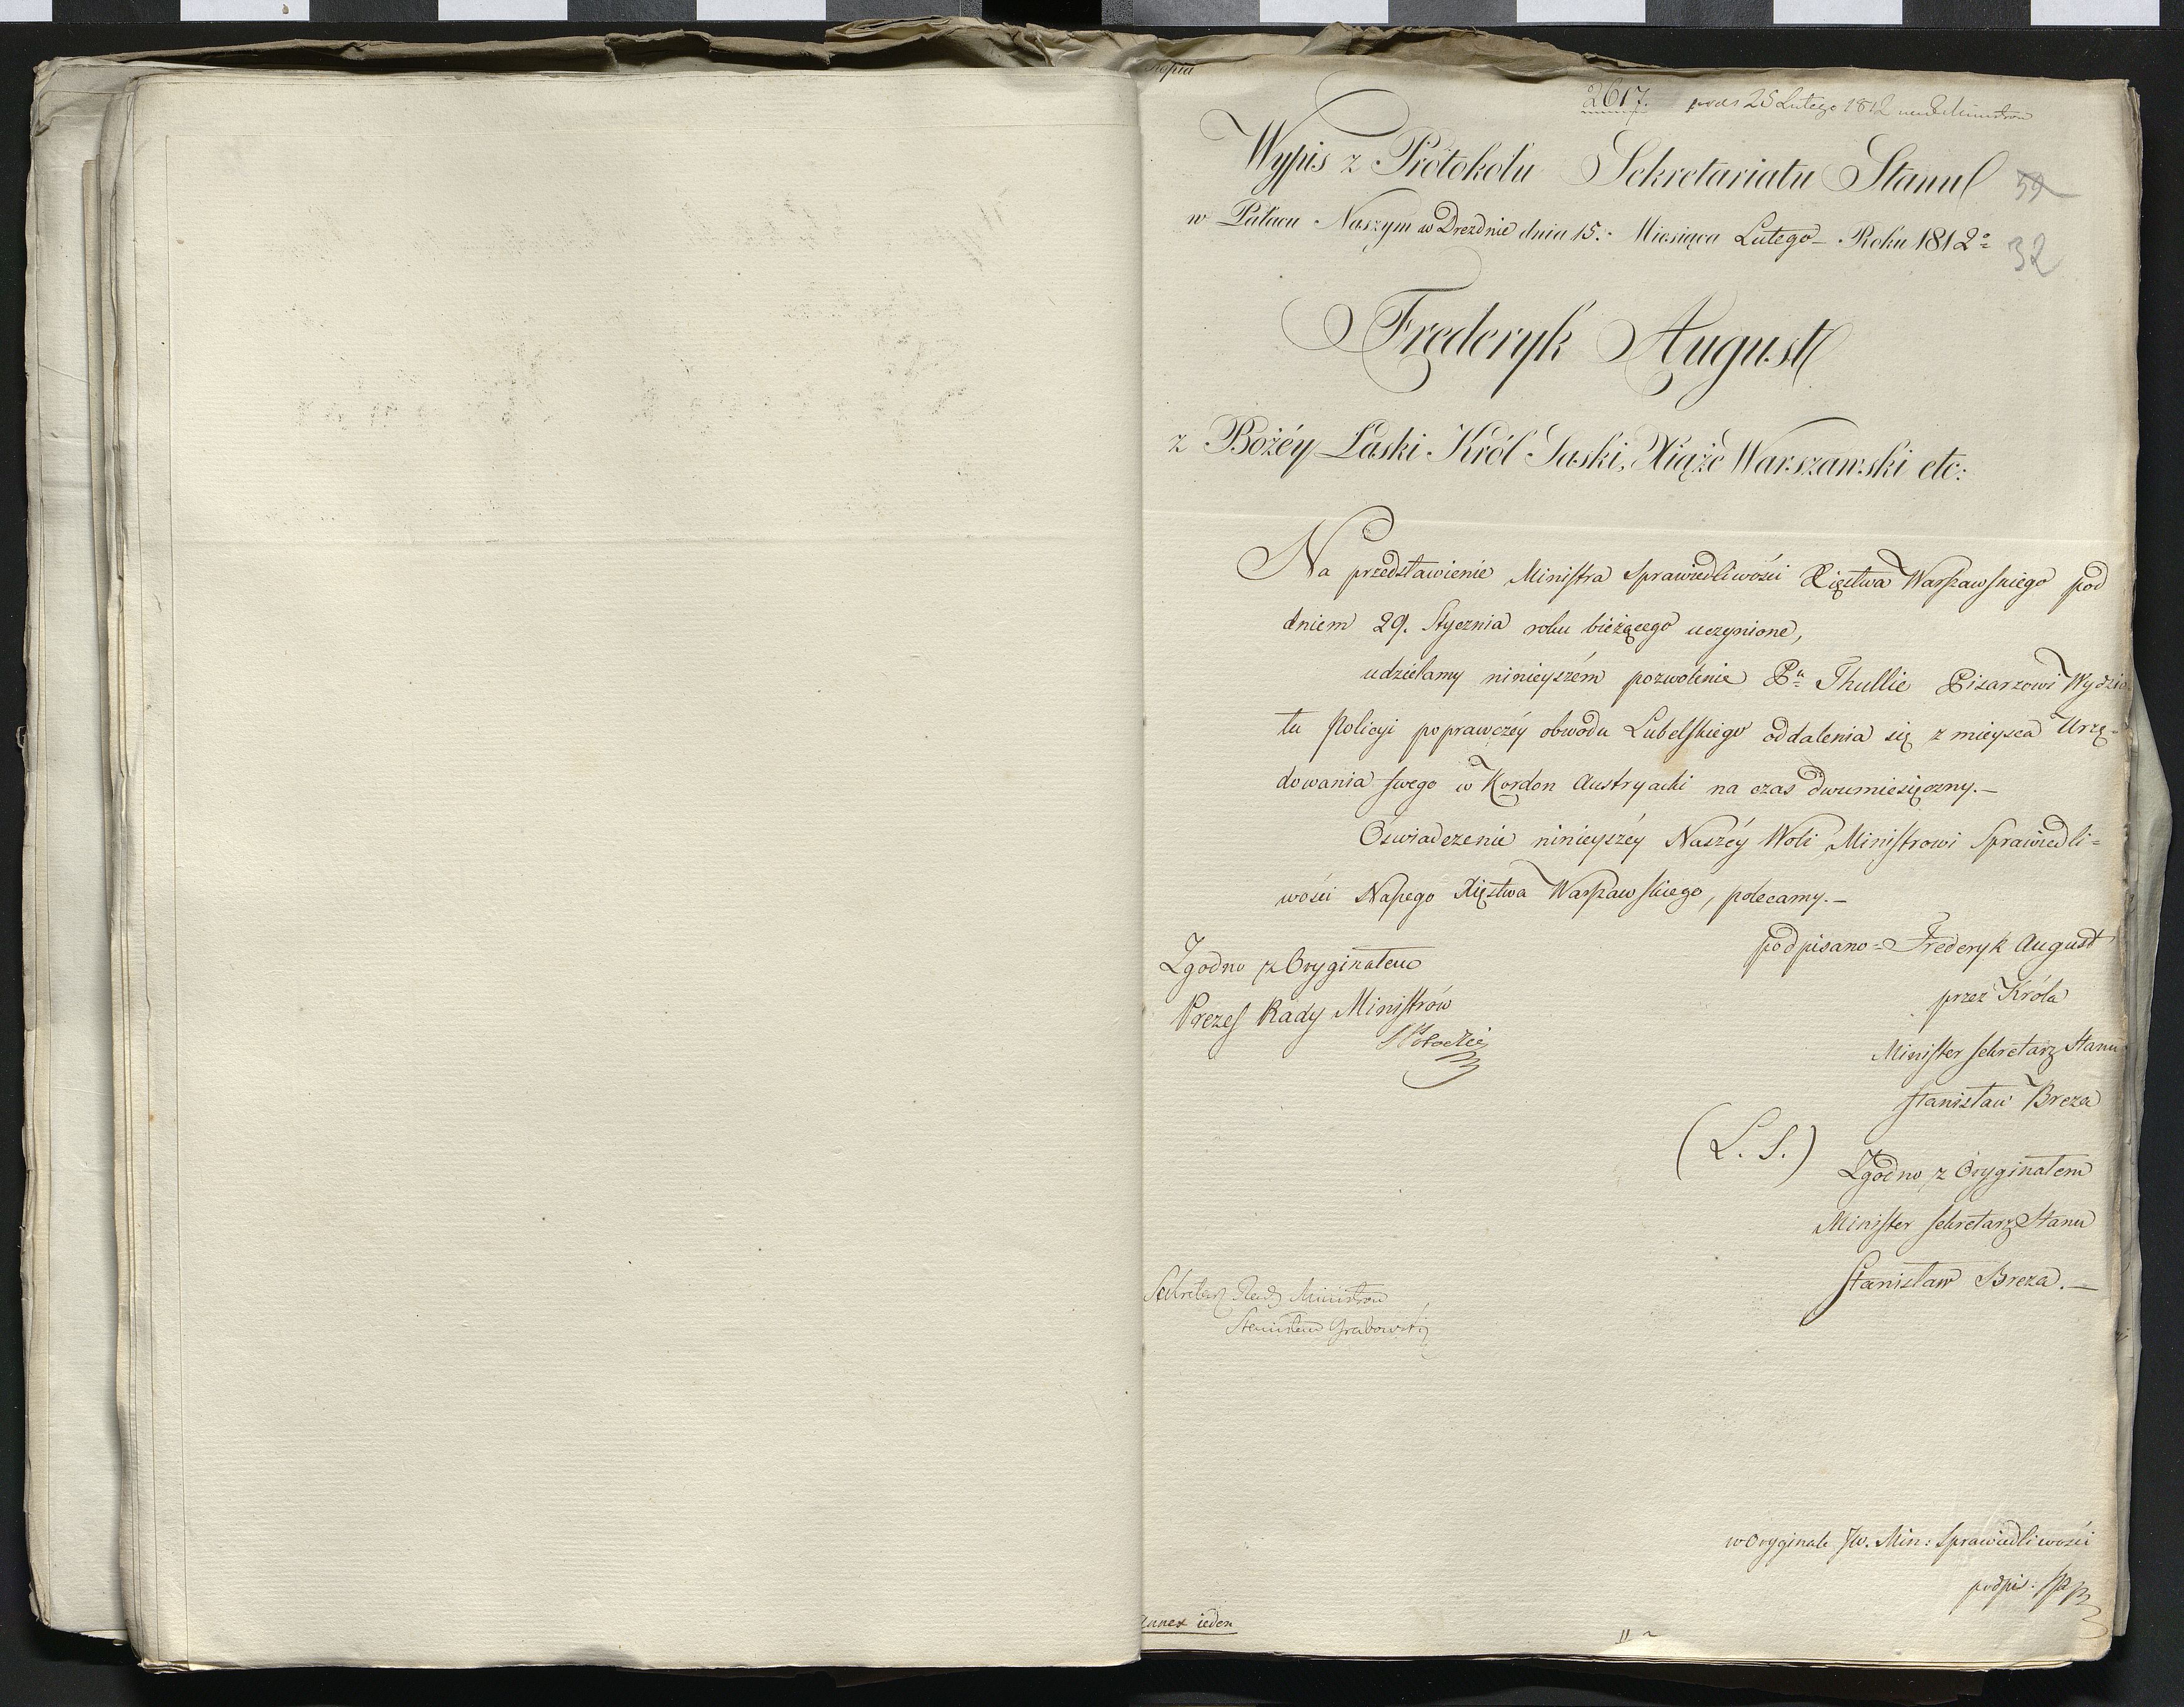 Kopia
2617. prds 25 Lutego 1812
Wypis z Protokołu Sekretariatu Stanu
59
w Pałacu Naszym w Dreźnie dnia 15. Miesiąca Lutego Roku 1812º
32
Frederyk August
z Bożéy Łaski Król Saski, Xiążę Warszawski etc:
Na przedstawienie Ministra Sprawiedliwości Xięstwa Warszawskiego pod
dniem 29. Stycznia roku bieżącego uczynione,
udzielamy ninieyszém pozwolenie Pu Thullie Pisarzowi Wydzia
łu Policyi poprawczéy obwodu Lubelskiego oddalenia się z mieysca Urzę-
dowania swego w Kordon Austryacki na czas dwumiesięczny.—
Oświadczenie ninieyszéy Naszéy Woli Ministrowi Sprawiedli=
wości Naszego Xięstwa Warszawskiego, polecamy.—
podpisano = Frederyk August
Zgodno z Oryginałem
przez Króla
Prezes Rady Ministrów
Minister Sekretarz Stanu
S Potocki
Stanisław Breza
(L. S.)
Zgodno z Oryginałem
Minister Sekretarz Stanu
Stanisław Breza.—
Sekretarz Rady Ministrów
Stanisław Grabowski
w Oryginale JW. Min: Sprawiedliwości
podpis:
Annex ieden